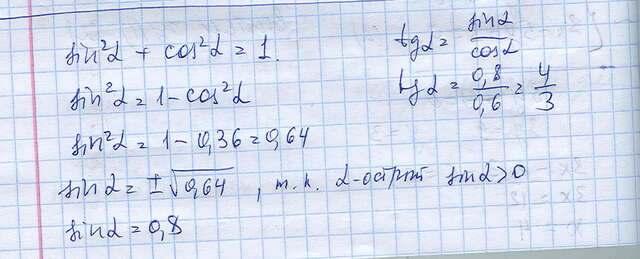 sin²α + cos²α = 1.
sin²α = 1 - cos²α
sin²α = 1 - 0,36 = 0,64
sin α = ± √0,64 , т.к. α-острый sin α > 0
sin α = 0,8
tg α = sin α / cos α
tg α = 0,8 / 0,6 = 4 / 3